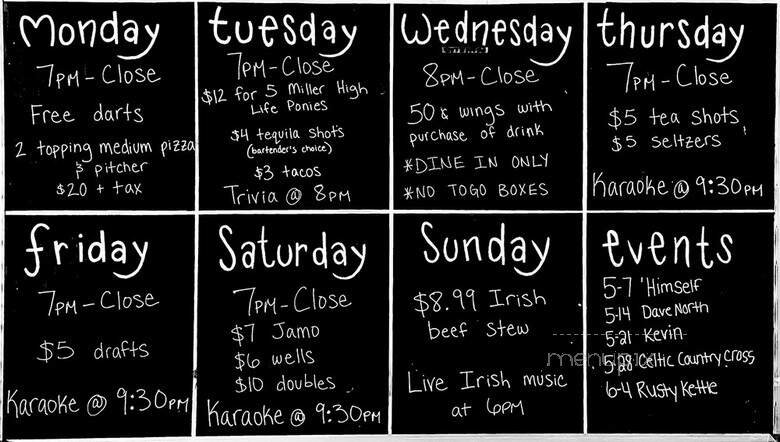 Monday
7PM - Close
Free darts
2 topping medium pizza
& pitcher
$20 + tax
tuesday
7PM - Close
$12 for 5 Miller High
Life Ponies
$4 tequila shots
(bartender's choice)
$3 tacos
Trivia @ 8PM
Wednesday
8PM - Close
50¢ wings with
purchase of drink
*DINE IN ONLY
*NO TOGO BOXES
thursday
7PM - Close
$5 tea shots
$5 seltzers
Karaoke @ 9:30PM
friday
7PM - Close
$5 drafts
Karaoke @ 9:30PM
Saturday
7PM - Close
$7 Jamo
$6 wells
$10 doubles
Karaoke @ 9:30PM
Sunday
$8.99 Irish
beef stew
Live Irish music
at 6PM
events
5-7 'Himself
5-14 Dave North
5-21 Kevin
5-28 Celtic Country Cross
6-4 Rusty Kettle